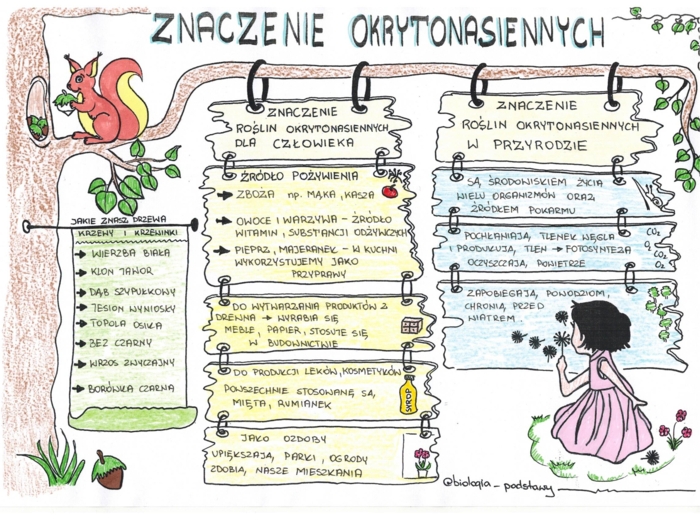 ZNACZENIE OKRYTONASIENNYCH
JAKIE ZNASZ DRZEWA
KRZEWY I KRZEWINKI
WIERZBA BIAŁA
KLON JAWOR
DĄB SZYPUŁKOWY
JESION WYNIOSŁY
TOPOLA OSIKA
BEZ CZARNY
WRZOS ZWYCZAJNY
BORÓWKA CZARNA
ZNACZENIE
ROŚLIN OKRYTONASIENNYCH
DLA CZŁOWIEKA
ŹRÓDŁO POŻYWIENIA
ZBOŻA np. MĄKA, KASZA
OWOCE I WARZYWA - ŹRÓDŁO
WITAMIN, SUBSTANCJI ODŻYWCZYCH
PIEPRZ, MAJERANEK - W KUCHNI
WYKORZYSTUJEMY JAKO
PRZYPRAWY
DO WYTWARZANIA PRODUKTÓW Z
DREWNA → WYRABIA SIĘ
MEBLE, PAPIER, STOSUJE SIĘ
W BUDOWNICTWIE
DO PRODUKCJI LEKÓW, KOSMETYKÓW
POWSZECHNIE STOSOWANE SĄ,
MIĘTA, RUMIANEK
SYROP
JAKO OZDOBY
UPIĘKSZAJĄ, PARKI, OGRODY
ZDOBIĄ, NASZE MIESZKANIA
ZNACZENIE
ROŚLIN OKRYTONASIENNYCH
W PRZYRODZIE
SĄ ŚRODOWISKIEM ŻYCIA
WIELU ORGANIZMÓW ORAZ
ŹRÓDŁEM POKARMU
POCHŁANIAJĄ, TLENEK WĘGLA
I PRODUKUJĄ, TLEN → FOTOSYNTEZA
OCZYSZCZAJĄ, POWIETRZE
CO₂
O₂ CO₂
CO₂
ZAPOBIEGAJĄ, POWODZIOM,
CHRONIĄ PRZED
WIATREM
@biologia_podstawy